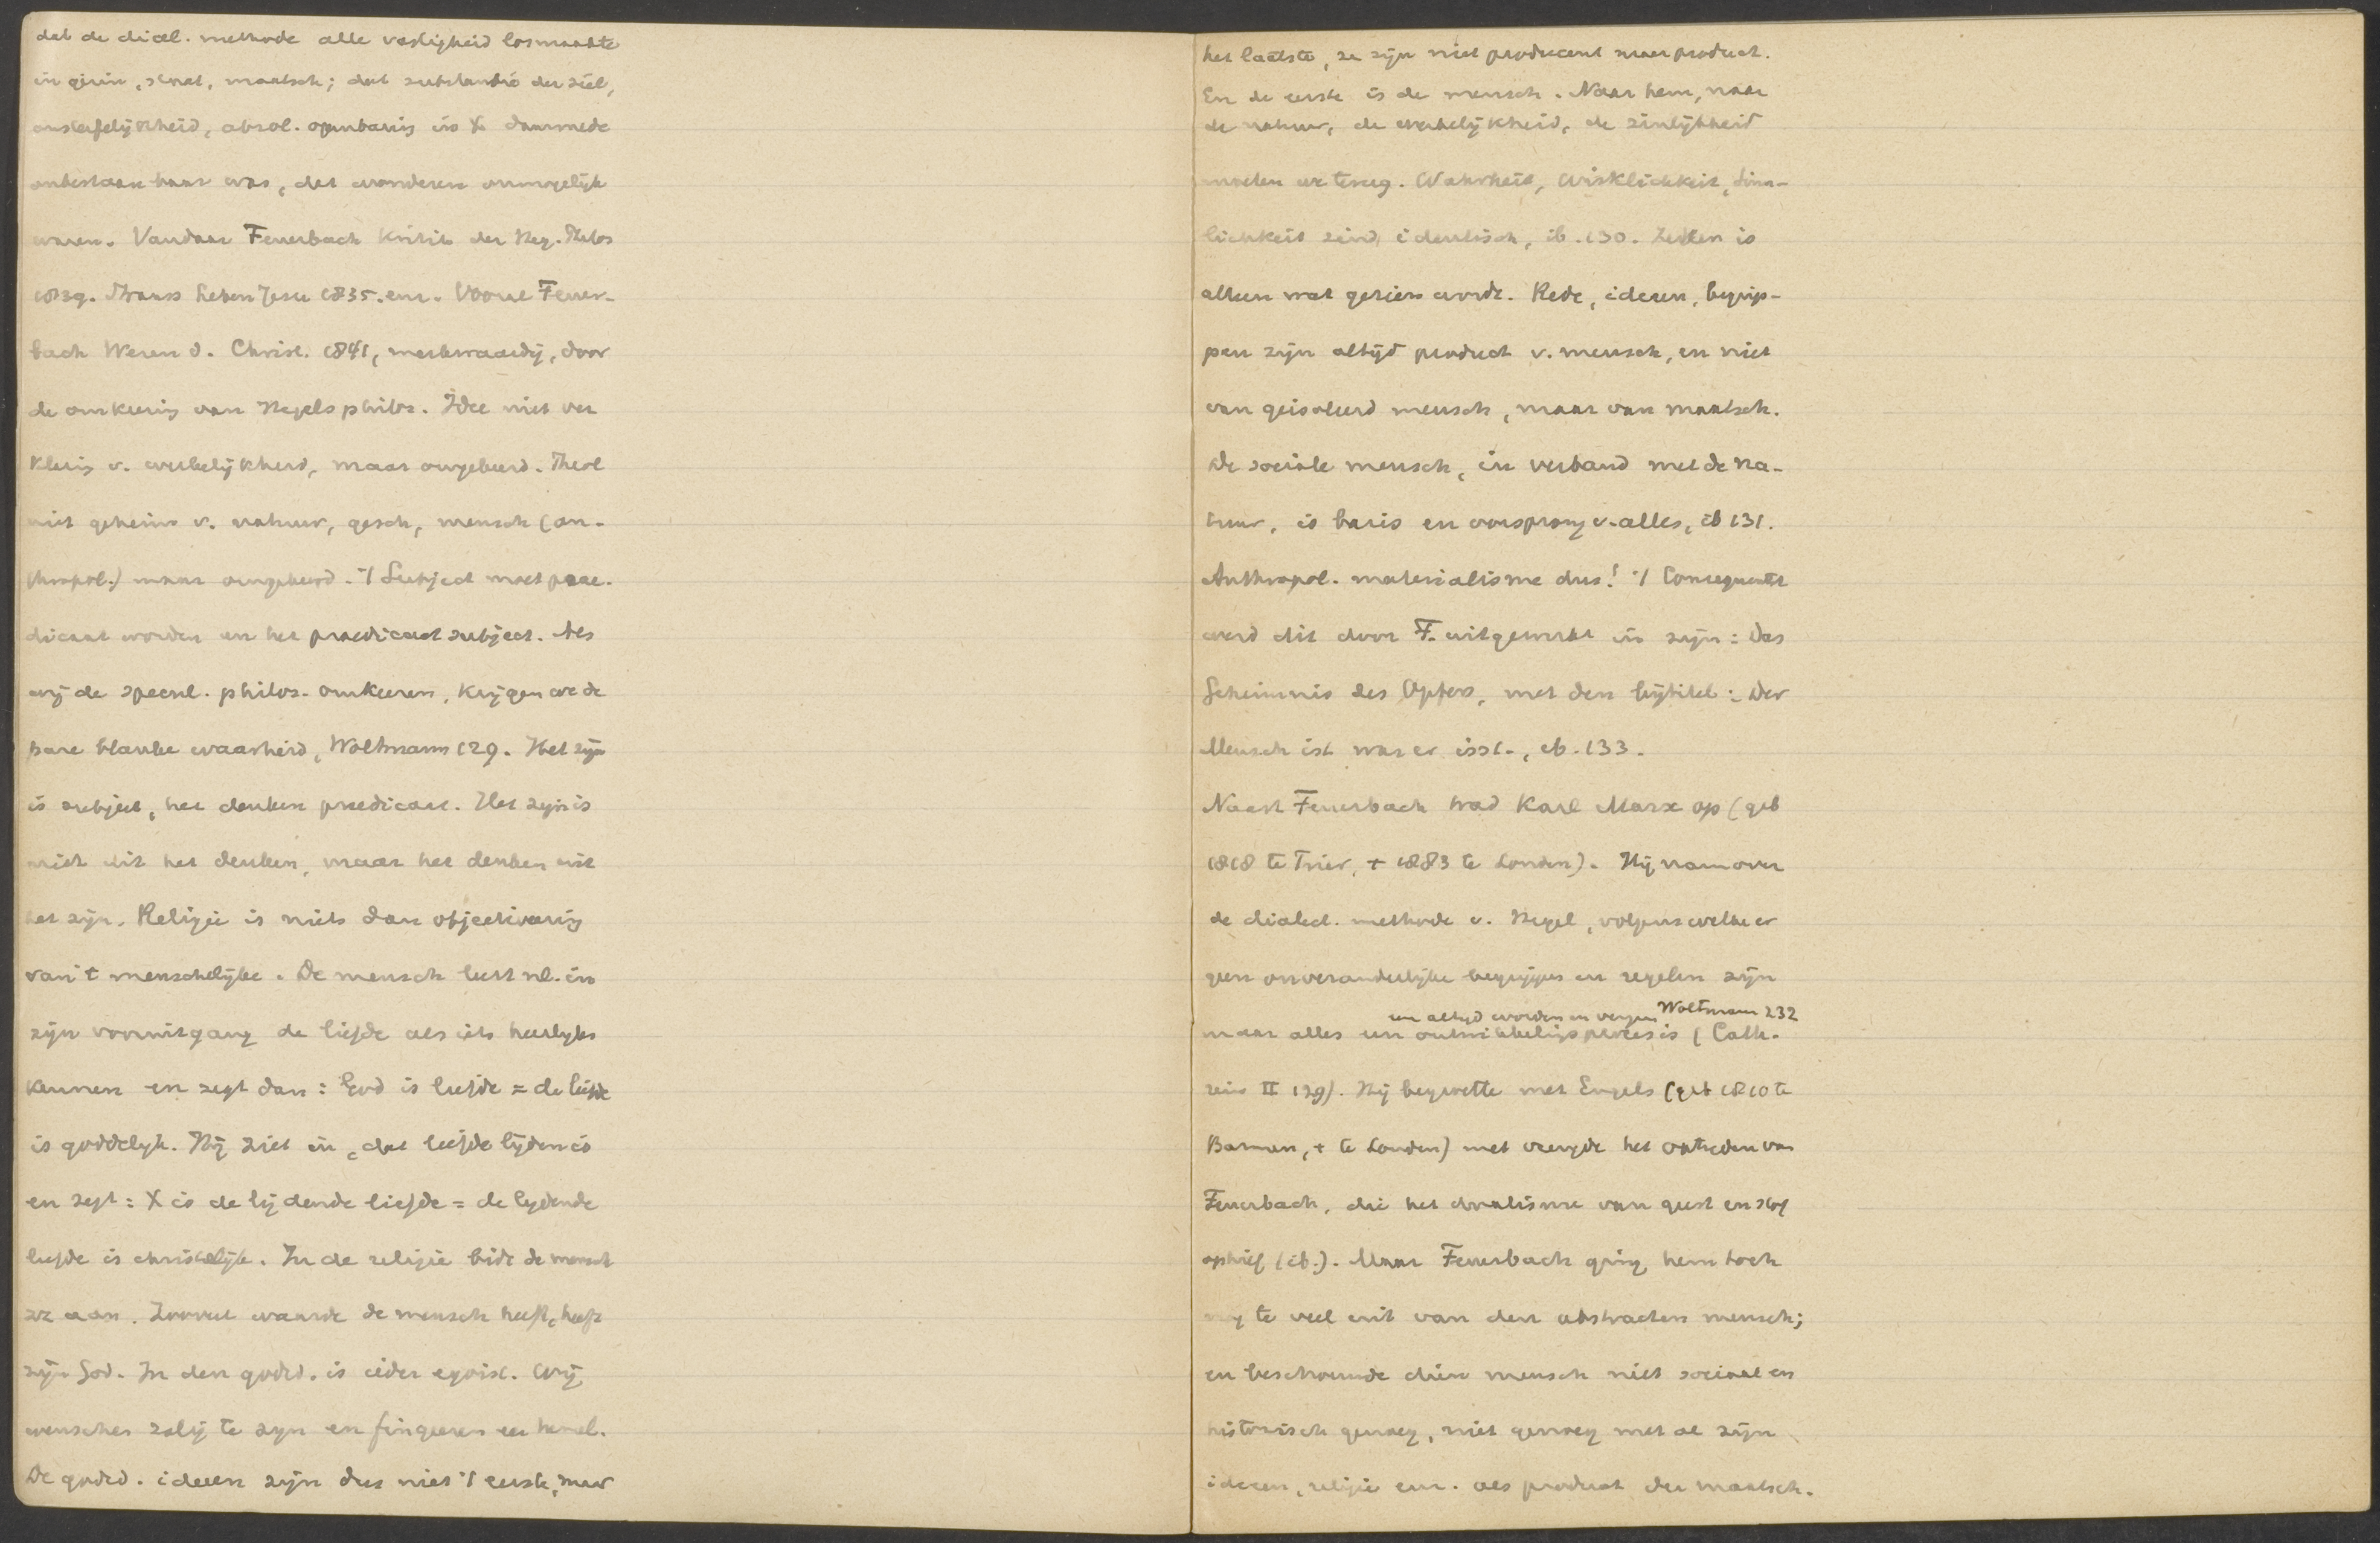 dat de dial. methode alle vastigheid losmaakte
in gezin, staat, maatsch; dat substantie der ziel,
onsterfelijkheid, absol. openbaring in X daarmede
onbestaanbaar was, dat wonderen onmogelijk
waren. Vandaar Feuerbach Kritik der Heg. Philos
1839. Strauss Leben Jesu 1835. enz. Vooral Feuer-
bach Wesen d. Christ. 1841, merkwaardig, door
de omkeering van Hegels philos. Idee niet ver
klaring v. werkelijkheid, maar omgekeerd. Theol
niet geheim v. natuur, gesch, mensch (an-
thropol.) maar omgekeerd. 't Subject moet prae-
dicaat worden en het praedicaat subject. Als
wij de specul. philos. omkeeren, krijgen we de
pure blanke waarheid, Woltmann 129. Het zijn
is subject, het denken praedicaat. Het zijn is
niet uit het denken, maar het denken uit
het zijn. Religie is niets dan objectivering
van 't menschelijke. De mensch leert nl. in
zijn vooruitgang de liefde als iets heerlijks
kennen en zegt dan: God is liefde = de liefde
is goddelijk. Hij ziet in, dat liefde lijden is
en zegt: X is de lijdende liefde = de lijdende
liefde is christelijk. In de religie bidt de mensch
zz aan. Zooveel waarde de mensch heeft, heeft
zijn God. In den godsd. is ieder egoist. Wij
wenschen zalig te zijn en fingeeren een hemel.
De godsd. ideeen zijn dus niet 't eerste, maar
het laatste, ze zijn niet producent maar product.
En de eerste is de mensch. Naar hem, naar
de natuur, de werkelijkheid, de zinlijkheid
moeten we terug. Wahrheit, Wirklichkeit, Sinn-
lichkeit sind identisch, ib. 130. Zeker is
alleen wat gezien wordt. Rede, ideeen, begrip-
pen zijn altijd product v. mensch, en niet
van geisoleerd mensch, maar van maatsch.
De sociale mensch, in verband met de na-
tuur, is basis en oorsprong v. alles, ib 131.
Anthropol. materialisme dus! 't Consequentst
werd dit door F. uitgewerkt in zijn: Das
Geheimnis des Opfers, met den bijtitel: Der
Mensch ist was er isst., ib. 133.
Naast Feuerbach trad Karl Marx op (geb
1818 te Trier, + 1883 te Londen). Hij nam over
de dialect. methode v. Hegel, volgens welke er
geen onveranderlijke begrippen en regelen zijn
een altijd worden en vergaan Woltmann 232
maar alles een ontwikkelingsproces is (Cath-
rein II 129). Hij begroette met Engels (geb 1820 te
Barmen, + te Londen) met vreugde het optreden van
Feuerbach, die het dualisme van geest en stof
ophief (ib.). Maar Feuerbach ging hem toch
nog te veel uit van den abstracten mensch;
en beschouwde dien mensch niet sociaal en
historisch genoeg, niet genoeg met al zijn
ideeen, religie enz. als product der maatsch.